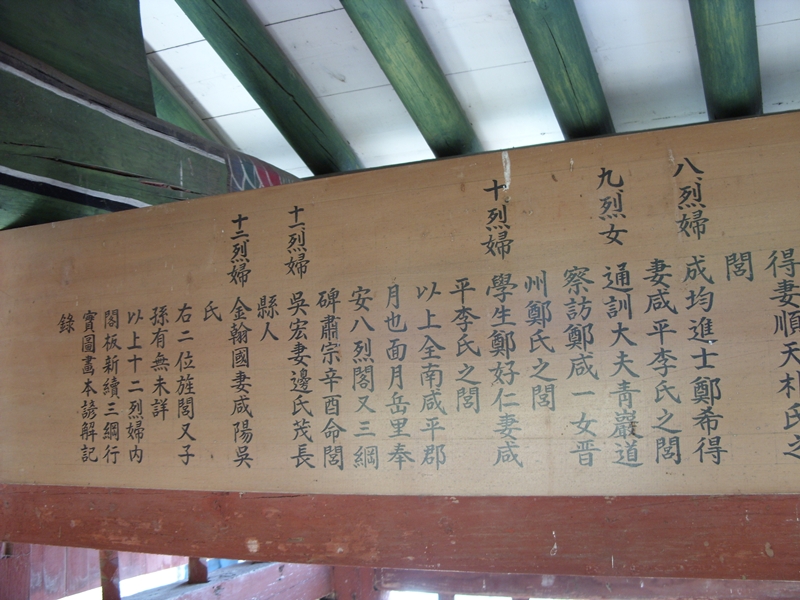 得妻順天朴氏之
閭
八、烈婦 成均進士鄭希得
妻咸平李氏之閭
九、烈女 通訓大夫靑巖道
察訪鄭咸一女晋
州鄭氏之閭
十、烈婦 學生鄭好仁妻咸
平李氏之閭
以上全南咸平郡
月也面月岳里奉
安八烈閣又三綱
碑肅宗辛酉命閭
十一、烈婦 吳宏妻邊氏茂長
縣人
十二、烈婦 金翰國妻咸陽吳
氏
右二位旌閭又子
孫有無未詳
以上十二烈婦內
閣板新續三綱行
實圖畵本諺解記
錄